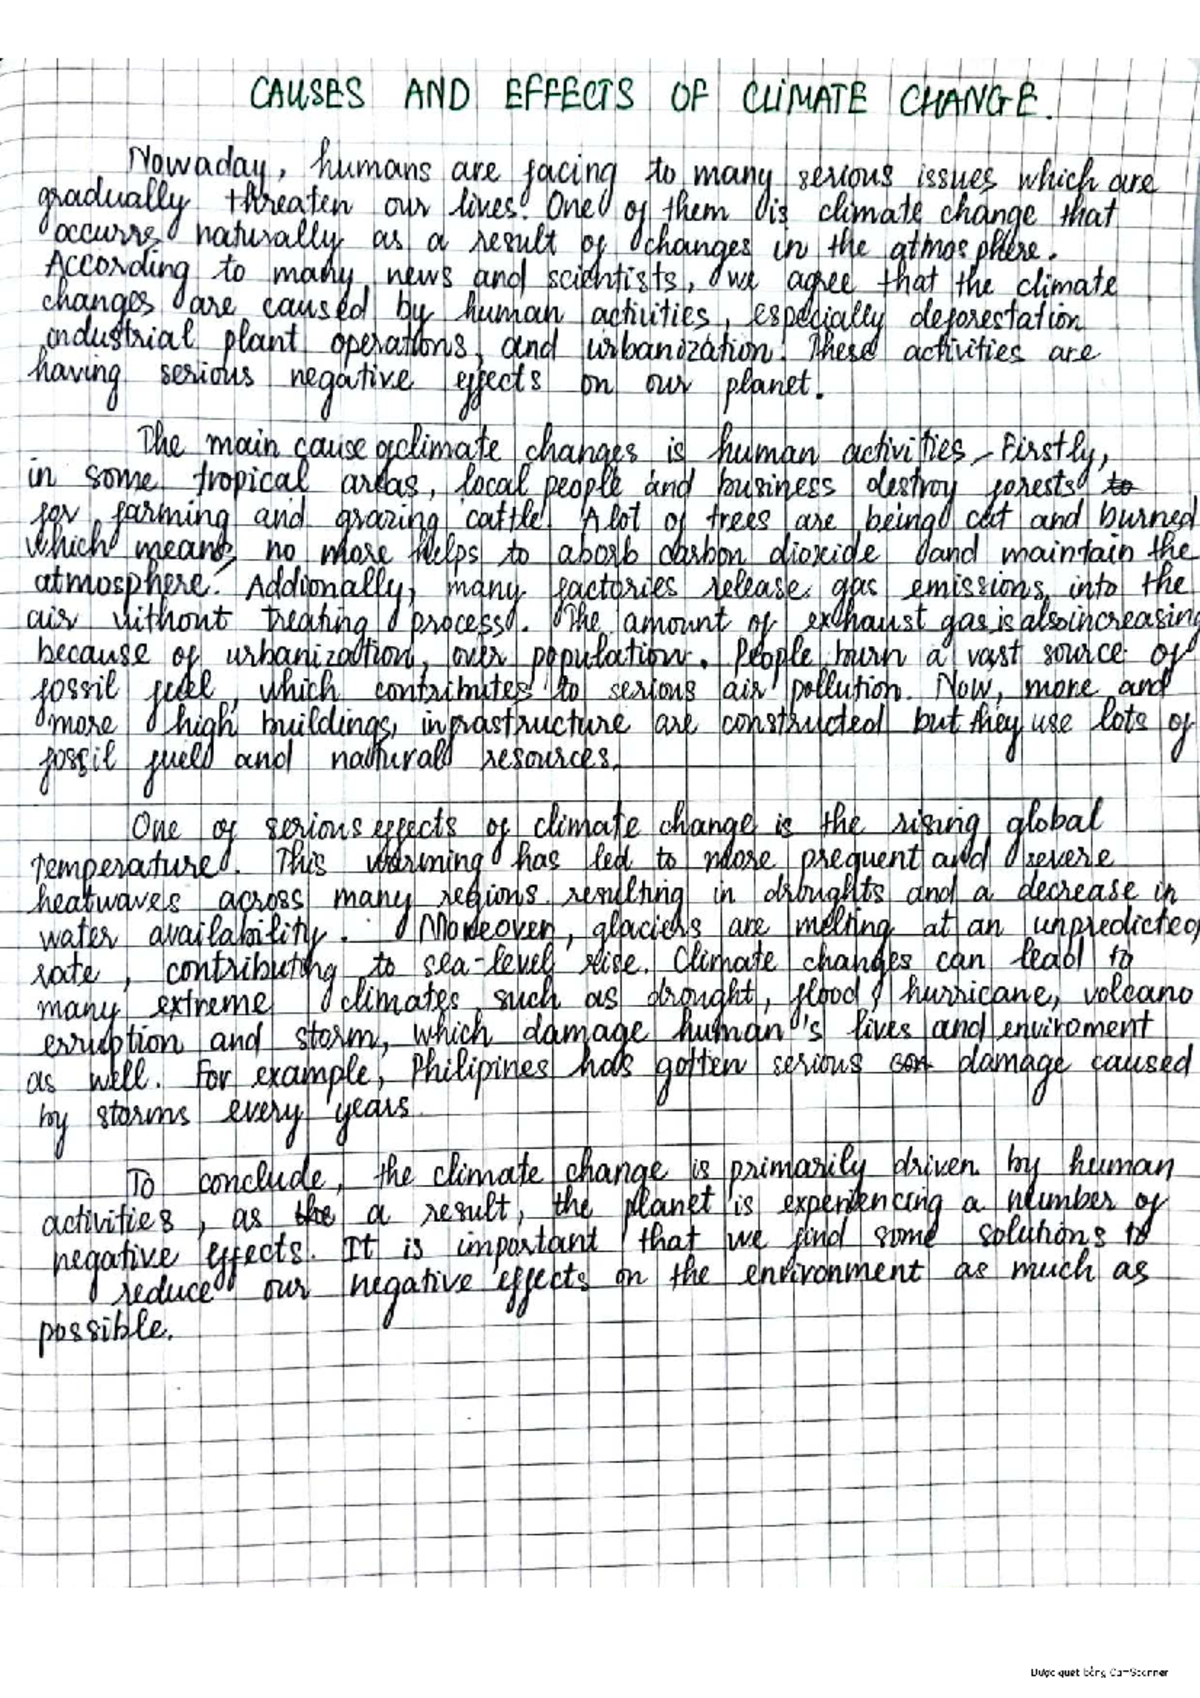 CAUSES AND EFFECTS OF CLIMATE CHANGE.
Nowaday, humans are facing to many serious issues which are
gradually threaten our lives. One of them is climate change that
occurrs naturally as a result of changes in the atmosphere.
According to many news and scientists, we agree that the climate
changes are caused by human activities, especially deforestation
industrial plant operations, and urbanization. These activities are
having serious negative effects on our planet.
The main cause of climate changes is human activities. Firstly,
in some tropical areas, local people and business destroy forests to
for farming and grazing cattle. A lot of trees are being cut and burned
which means no more helps to aborb carbon dioxide and maintain the
atmosphere. Addionally, many factories release gas emissions into the
air without treating process. The amount of exhaust gas is also increasing
because of urbanization, over population. People burn a vast source of
fossil fuel, which contributes to serious air pollution. Now, more and
more high buildings, infrastructure are constructed but they use lots of
fossil fuel and natural resources.
One of serious effects of climate change is the rising global
temperature. This warming has led to more frequent and severe
heatwaves across many regions resulting in droughts and a decrease in
water availability. Moreover, glaciers are melting at an unpredicted
rate, contributing to sea-level rise. Climate changes can lead to
many extreme climates such as drought, flood, hurricane, volcano
erruption and storm, which damage human's lives and enviroment
as well. For example, Philipines has gotten serious damage caused
by storms every years.
To conclude, the climate change is primarily driven by human
activities, as the a result, the planet is experiencing a number of
negative effects. It is important that we find some solutions to
reduce our negative effects on the environment as much as
possible.
Được quét bằng CamScanner